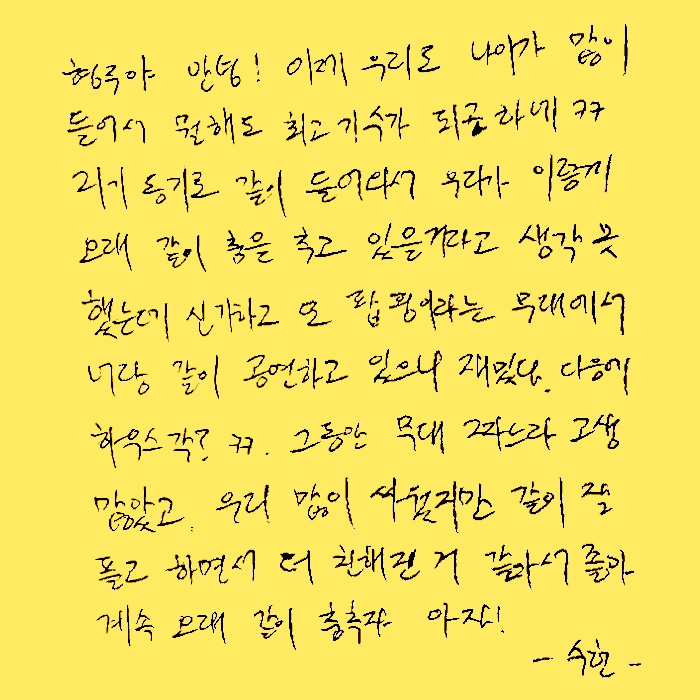 형규야 안녕! 이제 우리도 나이가 많이
들어서 뭘해도 최고기수가 되곤 하네 ㅋㅋ
리거 동기로 같이 들어와서 우리가 이렇게
오래 같이 춤을 추고 있을거라고 생각 못
했는데 신기하고 또 팝핑이라는 무대에서
너랑 같이 공연하고 있으니 재밌다. 다음에
하우스각? ㅋㅋ. 그동안 무대 짜느라 고생
많았고, 우리 많이 싸웠지만 같이 잘
풀고 하면서 더 친해진 거 같아서 좋아
계속 오래 같이 춤추자 아자!
- 수현 -